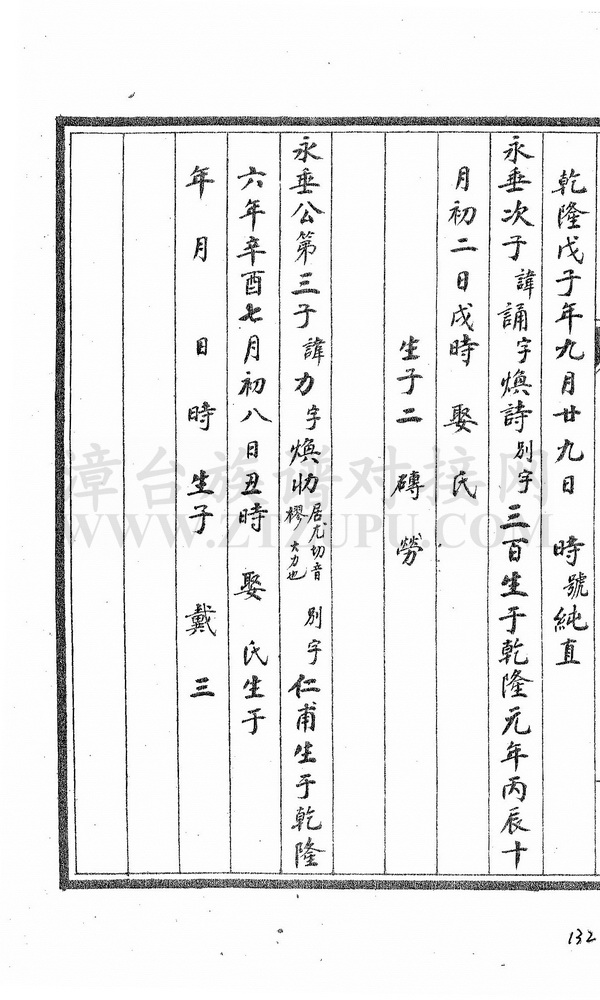 乾隆戊子年九月廿九日 時號純直
永垂次子諱誦字煥詩別字三百生于乾隆元年丙辰十
月初二日戌時 娶 氏
生子二 磚 勞
永垂公第三子諱力字煥㔹居尤切音樛大力也 別字仁甫生于乾隆
六年辛酉七月初八日丑時 娶 氏生于
年 月 日 時 生子 戴 三
漳台族谱对接网
WWW.ZTZUPU.COM
132